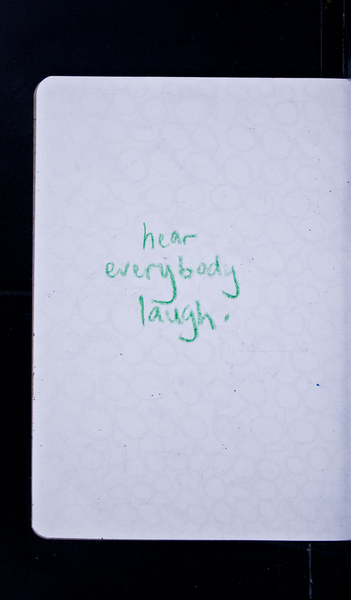 hear
everybody
laugh.